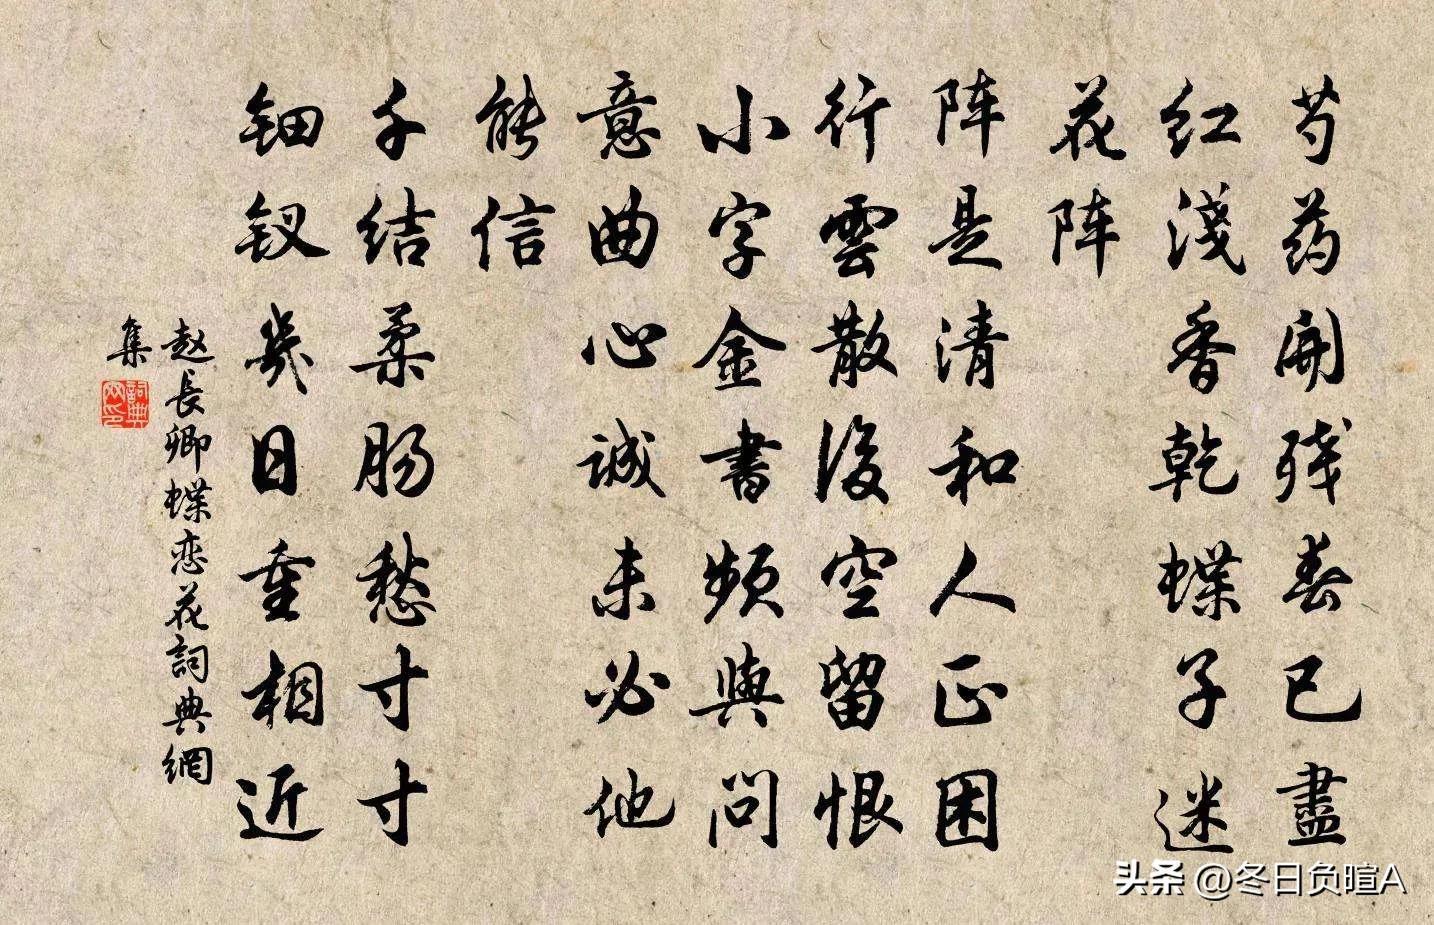 芍药開残春已盡
红淺香乾蝶子迷
花阵
阵是清和人正困
行雲散後空留恨
小字金書频與问
意曲心诚未必他
能信
千结柔肠愁寸寸
钿钗幾日重相近
赵長卿蝶恋花詞典網
集
詞典
网印
头条 @冬日负暄A